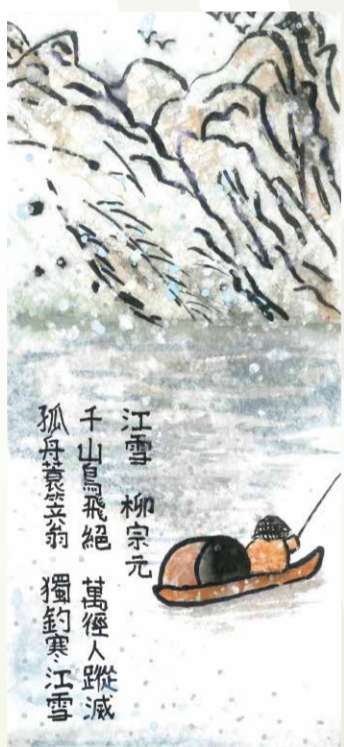 江雪 柳宗元
千山鳥飛絕 萬徑人蹤滅
孤舟蓑笠翁 獨釣寒江雪